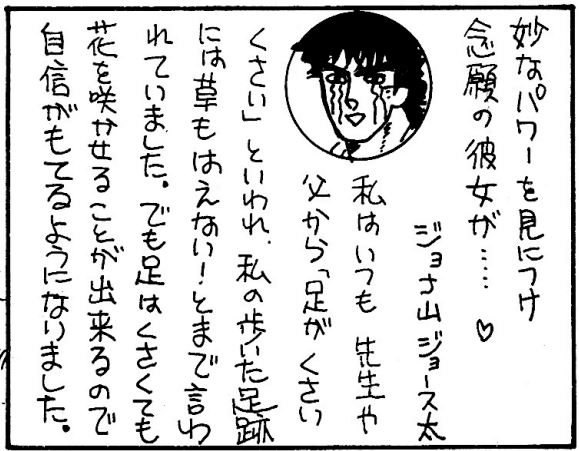 妙なパワーを見につけ
念願の彼女が……♡
ジョナ山ジョース太
私はいつも先生や
父から「足がくさい
くさい」といわれ、私の歩いた足跡
には草もはえない！とまで言わ
れていました。でも足はくさくても
花を咲かせることが出来るので
自信がもてるようになりました。